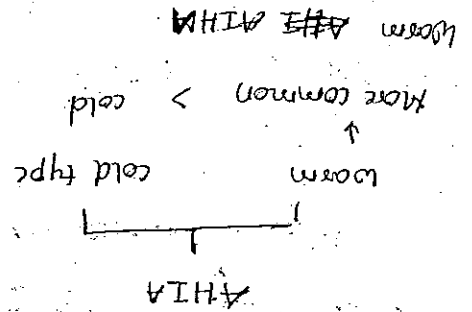 AIHA
warm cold type
↓
More common > cold
Warm AIHA